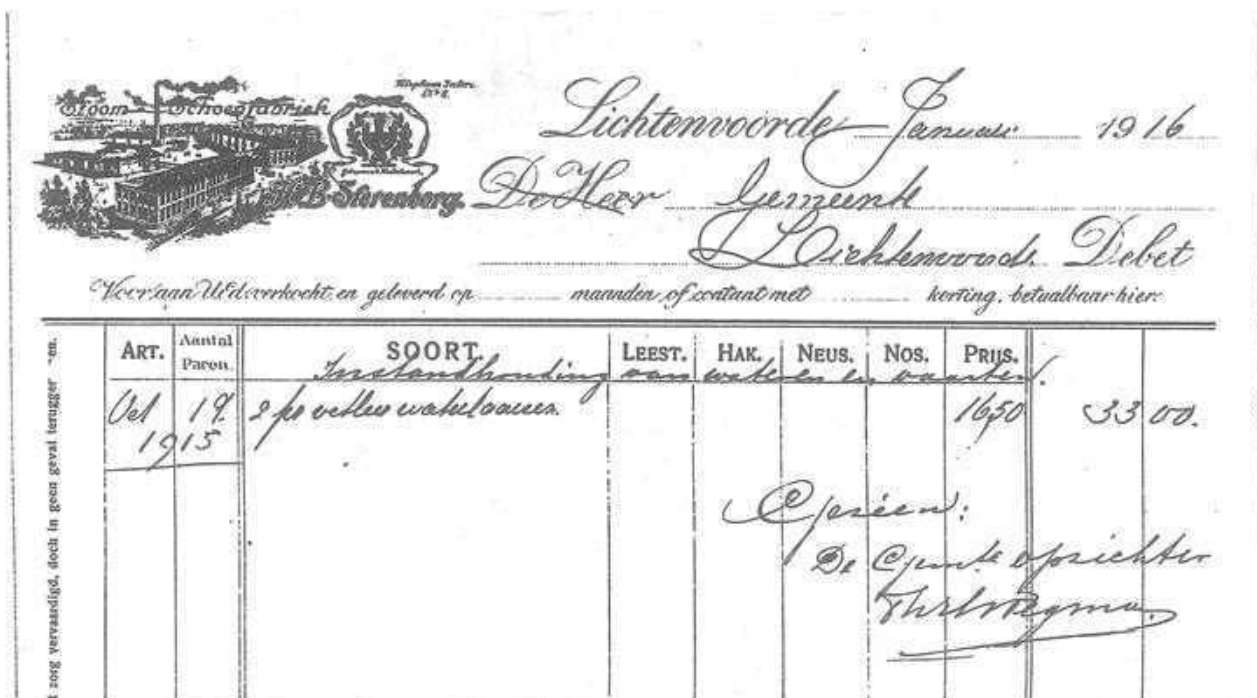 Stoom Schoenfabriek
Telephoon Inter.
Sterenborg.
Lichtenvoorde, Januari 1916
De Heer Gemeente
Lichtenvoorde Debet
Voor aan UEd. verkocht en geleverd op maanden of contant met korting, betaalbaar hier:
ART. Aantal Paren. SOORT. LEEST. HAK. NEUS. NOS. PRIJS.
Instandhouding van wateren en vaarten.
Oct 19. 2 pr waterlaarzen. 16,50 33 00.
1915
Gezien:
De Gemte opzichter
zorg vervaardigd, doch in geen geval terugger